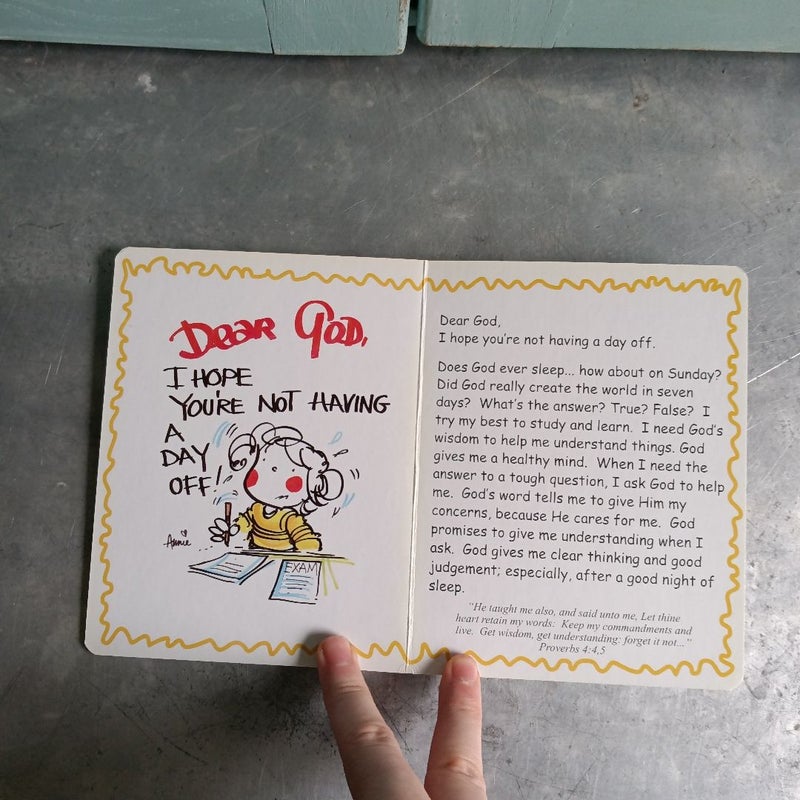 DEAR GOD,
I HOPE
YOU'RE NOT HAVING
A
DAY
OFF!
Annie
EXAM
Dear God,
I hope you're not having a day off.
Does God ever sleep... how about on Sunday?
Did God really create the world in seven
days? What's the answer? True? False? I
try my best to study and learn. I need God's
wisdom to help me understand things. God
gives me a healthy mind. When I need the
answer to a tough question, I ask God to help
me. God's word tells me to give Him my
concerns, because He cares for me. God
promises to give me understanding when I
ask. God gives me clear thinking and good
judgement; especially, after a good night of
sleep.
"He taught me also, and said unto me, Let thine
heart retain my words: Keep my commandments and
live. Get wisdom, get understanding: forget it not..."
Proverbs 4:4,5